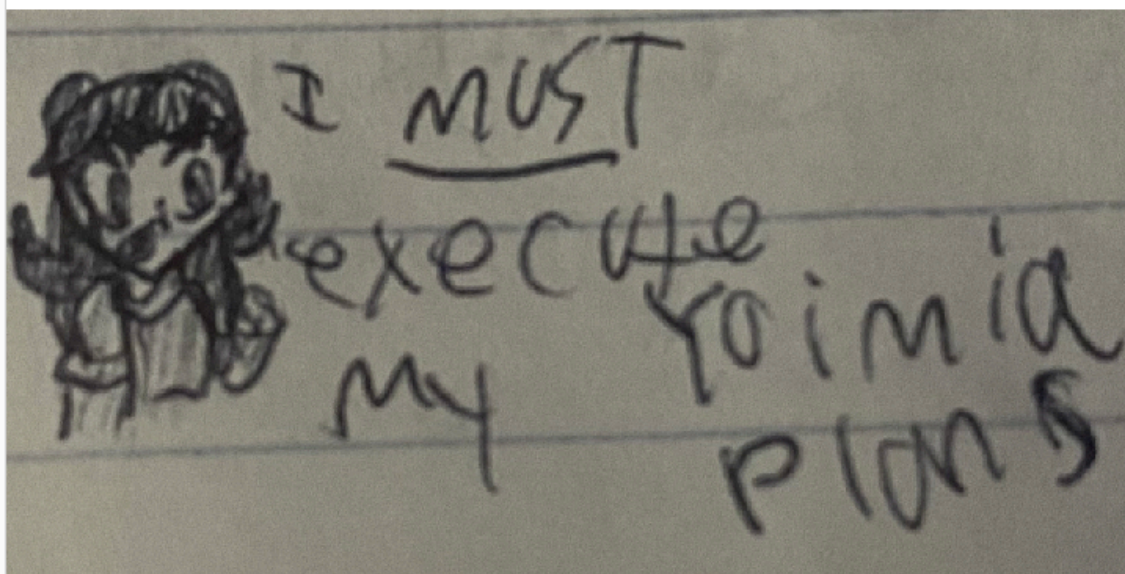 I MUST
execute
My Yoimia
plans